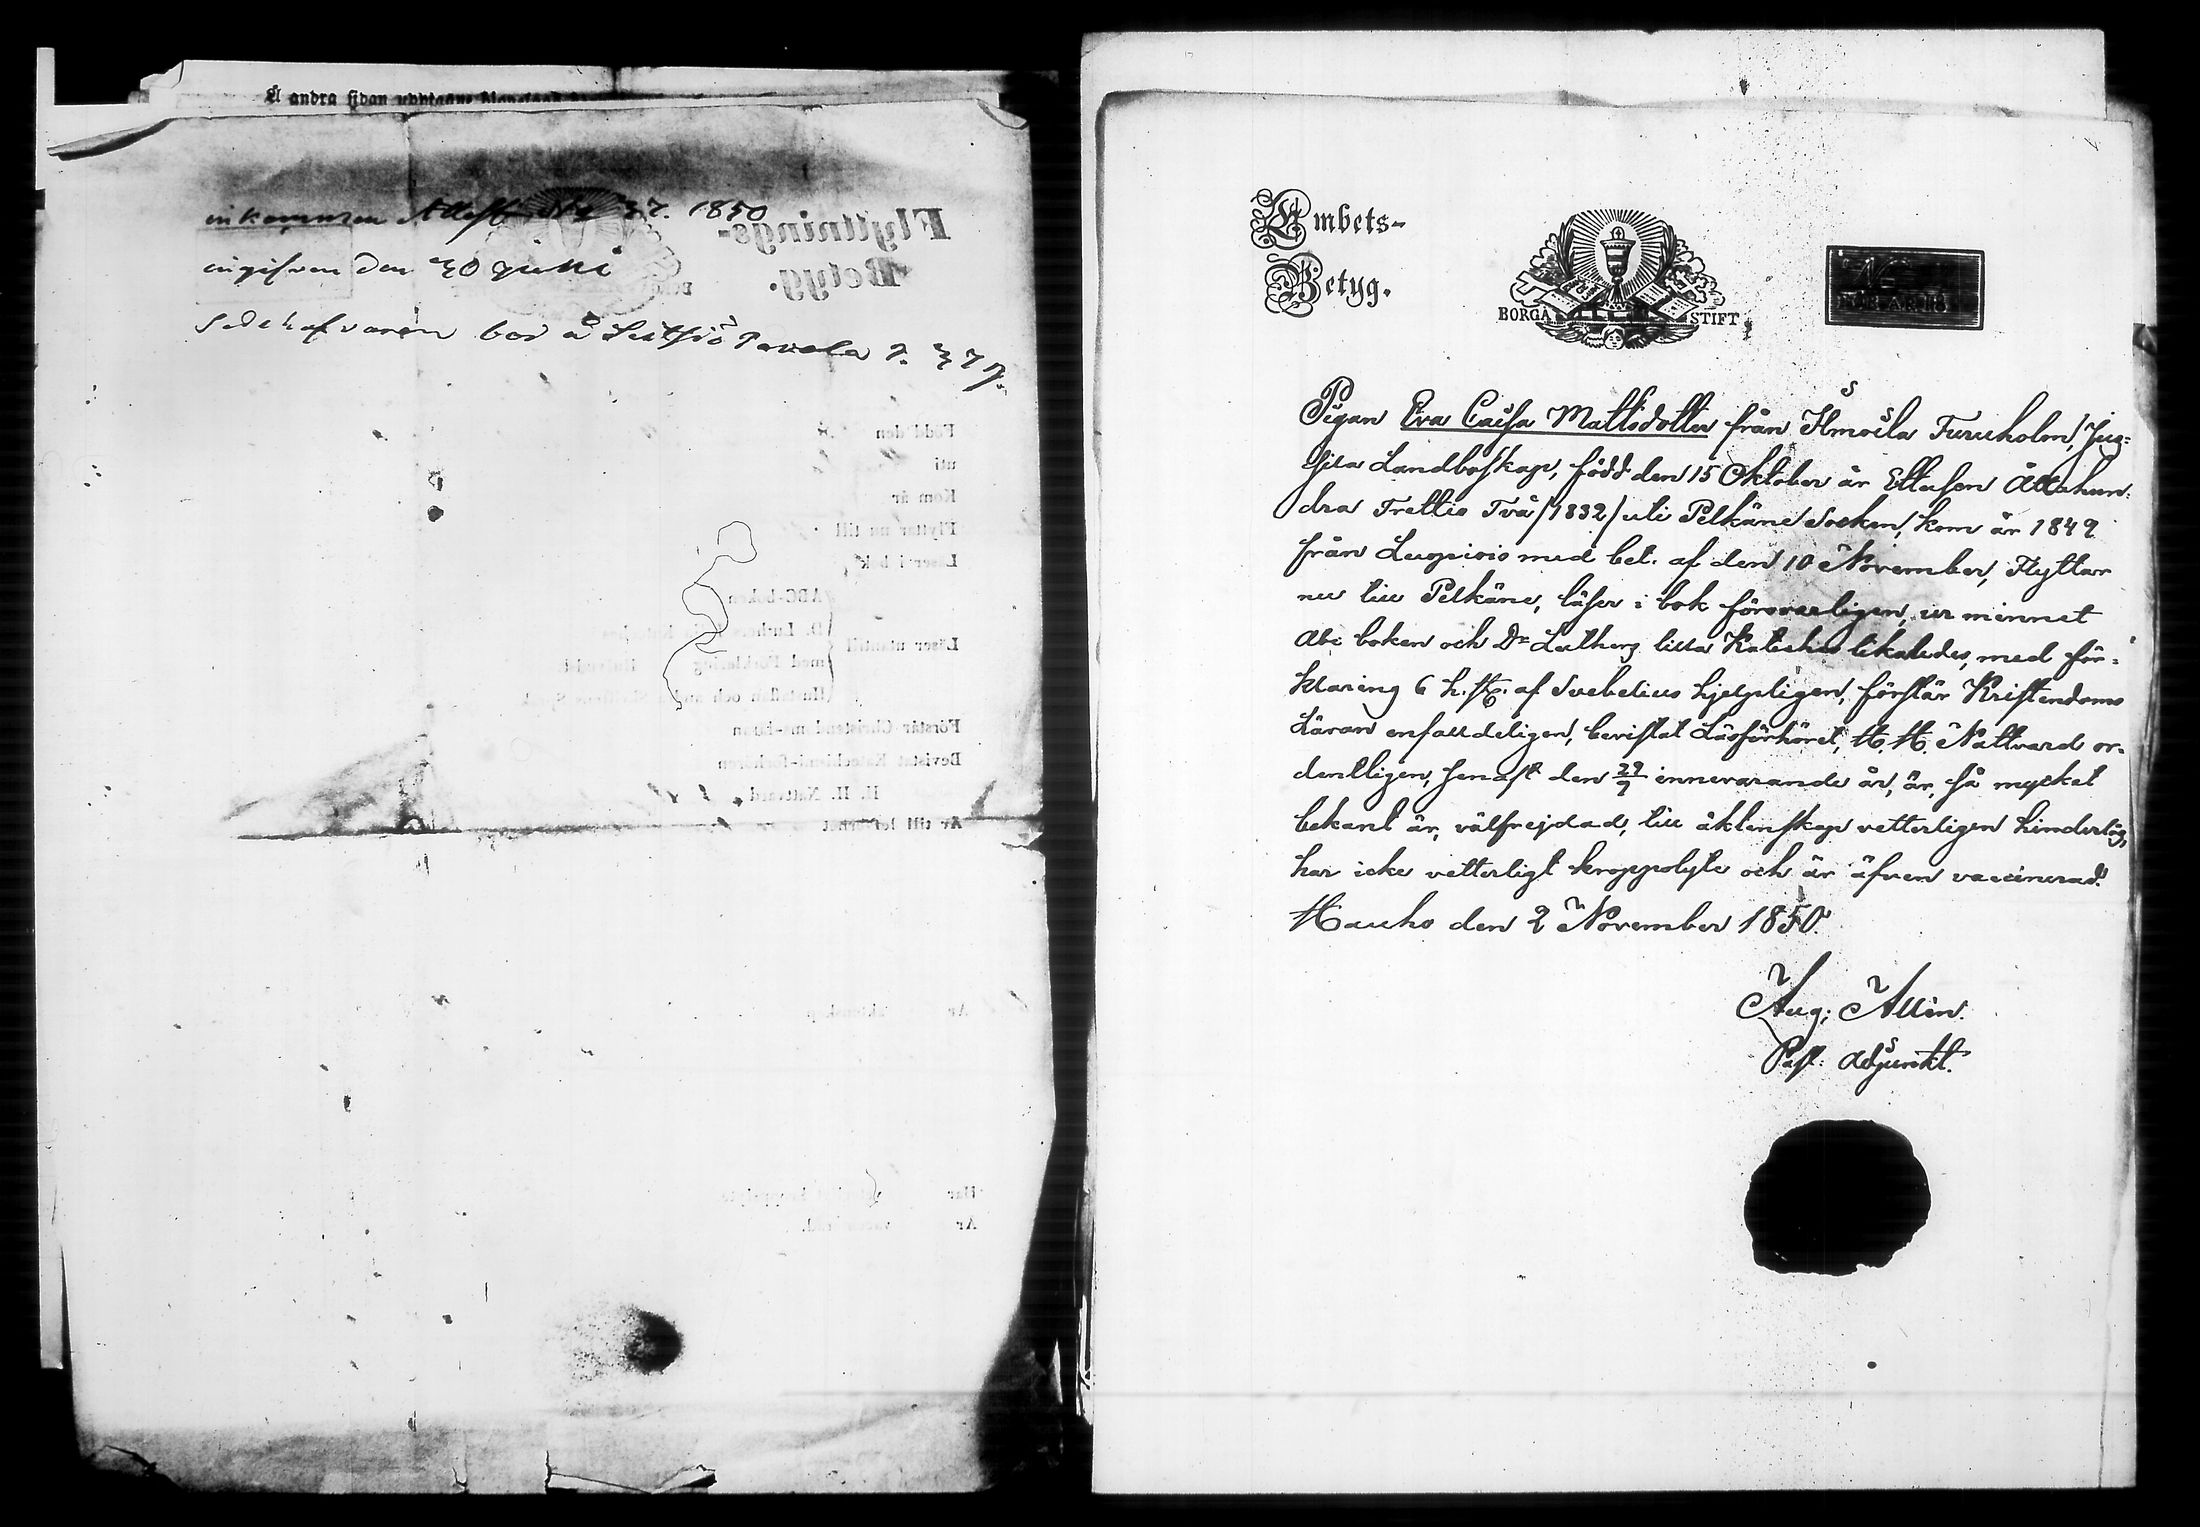 Å andra sidan upptagne
inkommen Attest N:o 37. 1850
ingifven den 30 juni
bor å Seitsiö Pavola p. 377.
Flyttnings-
Betyg.
Född den
uti
Kom år
Flyttar nu till
Läser i bok
ABC-boken
D. Luthers
Läser utantill
med Förklaring
Hustaflan och
Förstår Christendoms-läran
Bevistat Katechismi-förhören
H. H. Nattvard
Är till lefvernet
Är äktenskap
Har kroppslyte
Är vaccinerad.
Embets-
Betyg.
BORGÅ STIFT
Pigan Eva Caisa Mattsdotter från Ilmoila Furuholm, Jus-
sila Landbofskap, född den 15 Oktober år Ettusen Åttahun-
dra Trettio Två /1832/ uti Pelkäne Socken, kom år 1849
från Luopiois med bet. af den 10 November, Flyttar
nu till Pelkäne, läser i bok försvarligen, ur minnet
Abc boken och Dr Luthers lilla Kateches likaledes, med för-
klaring 6 h. st. af Svebelius hjelpligen, förstår Kristendoms
Läran enfalldeligen, bevistat Läsförhöret, H. H. Nattvard or-
dentligen, senast den 29/7 innevarande år, är, så mycket
bekant är, välfrejdad, till äktenskap vetterligen hinderlös,
har icke vetterligt kroppslyte och är äfven vaccinerad.
Hauho den 2 November 1850.
Aug; Allén.
Past. adjunkt.